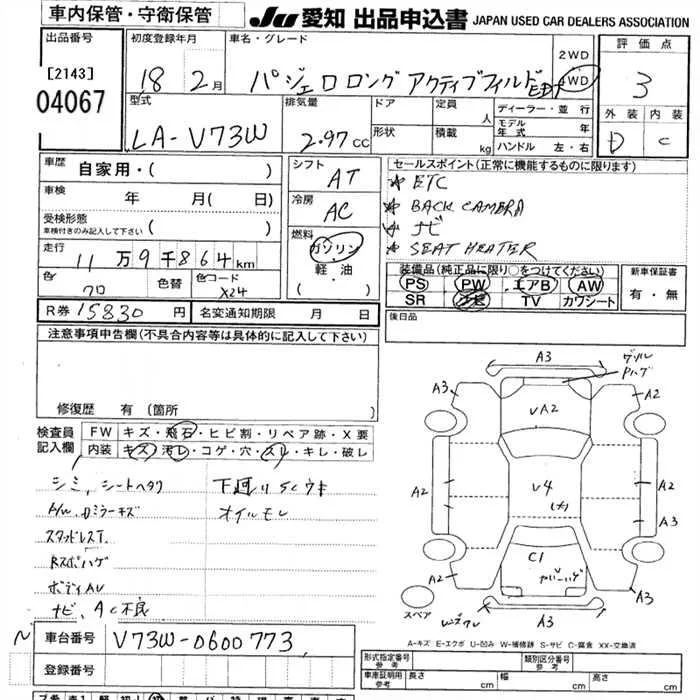 車内保管・守衛保管
JU 愛知 出品申込書 JAPAN USED CAR DEALERS ASSOCIATION
出品番号
[2143]
04067
初度登録年月
18 2月
車名・グレード
パジェロ ロング アクティブフィールドEDT
2WD
4WD
評価点
3
外装 内装
D C
型式
LA-V73W
排気量
2.97cc
ドア
定員 人
形状
積載 kg
ディーラー・並行
モデル年式 年
ハンドル 左・右
車歴
自家用・( )
車検
年 月( 日)
受検形態
車検付きのみ記入して下さい ( )
走行
11万9千864km
色
クロ
色替
色コード
X24
シフト
AT
冷房
AC
燃料
ガソリン・
軽・油
( )
セールスポイント(正常に機能するものに限ります)
★ ETC
★ BACK CAMERA
★ ナビ
★ SEAT HEATER
装備品(純正品に限り○をつけてください)
PS PW エアB AW
SR ナビ TV カワシート
新車保証書
有・無
R券 15830円
名変通知期限 月 日
後日品
注意事項申告欄(不具合内容等は具体的に記入して下さい)
修復歴 有(箇所 )
検査員記入欄
FW キズ・飛石・ヒビ割・リペア跡・X要
内装 キズ・汚レ・コゲ・穴・スレ・キレ・破レ
シミ、シートヘタリ
A/W、ロミラーキズ
スタッドレスT.
Rスポハゲ
ボディAU
ナビ、AC不良
下廻りSCウキ
オイルモレ
A3
グリル
Pハゲ
A3
A2
UA2
A2
A2
U4
A3
C1
A2
A3
スペア
A3
A-キズ E-エクボ U-凹み W-補修跡 S-サビ C-腐食 XX-交換済
N
車台番号
V73W-0600773
登録番号
形式指定番号
参考
類別区分番号
参考
車庫証明用
参考
長さ cm
幅 cm
高さ cm